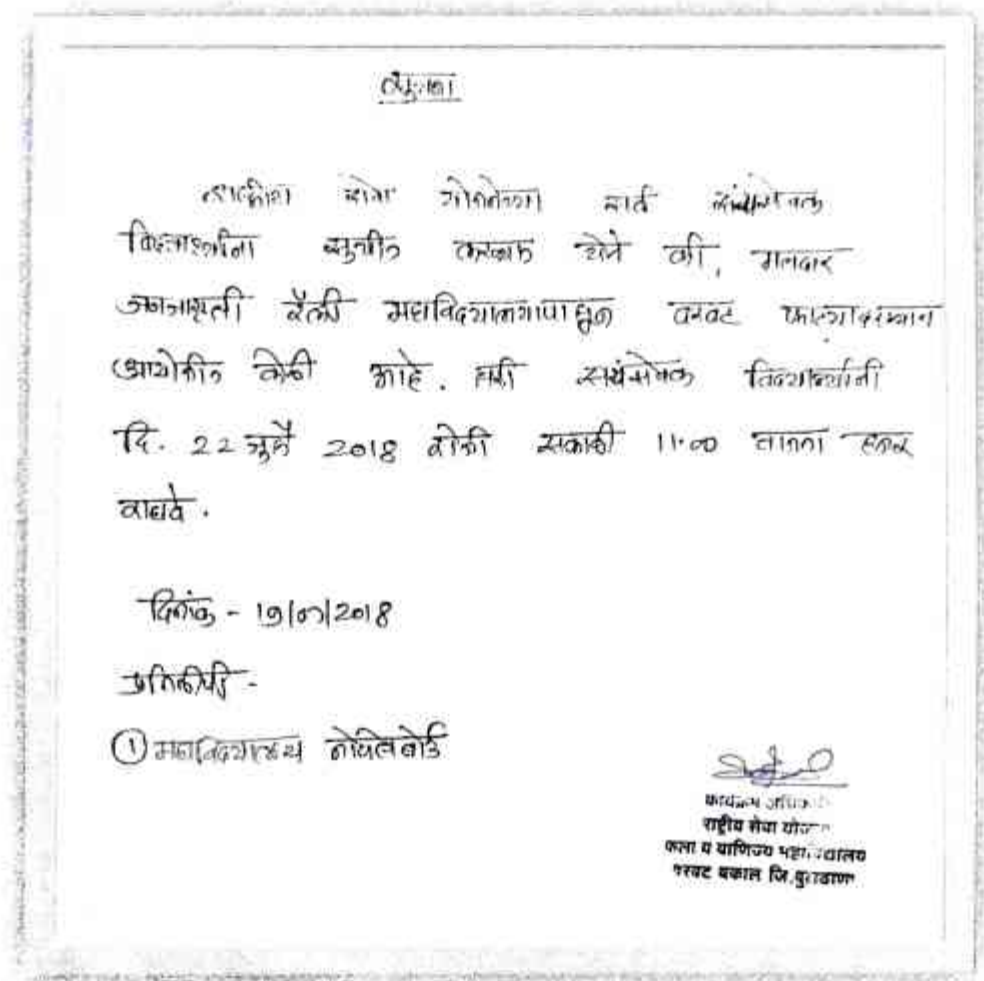 सूचना
राष्ट्रीय सेवा योजनेच्या सर्व स्वयंसेवक
विद्यार्थ्यांना सुचीत करण्यात येते की, मतदार
जनजागृती रॅली महाविद्यालयापासून वरवट
आयोजीत केली आहे. तरी स्वयंसेवक विद्यार्थ्यांनी
दि. 22 जुलै 2018 रोजी सकाळी 11.00 वाजता हजर
राहावे.
दिनांक - 19/07/2018
प्रतिलीपी -
① महाविद्यालय नोटीस बोर्ड
कार्यक्रम अधिकारी
राष्ट्रीय सेवा योजना
कला व वाणिज्य महाविद्यालय
वरवट बकाल जि.बुलडाणा